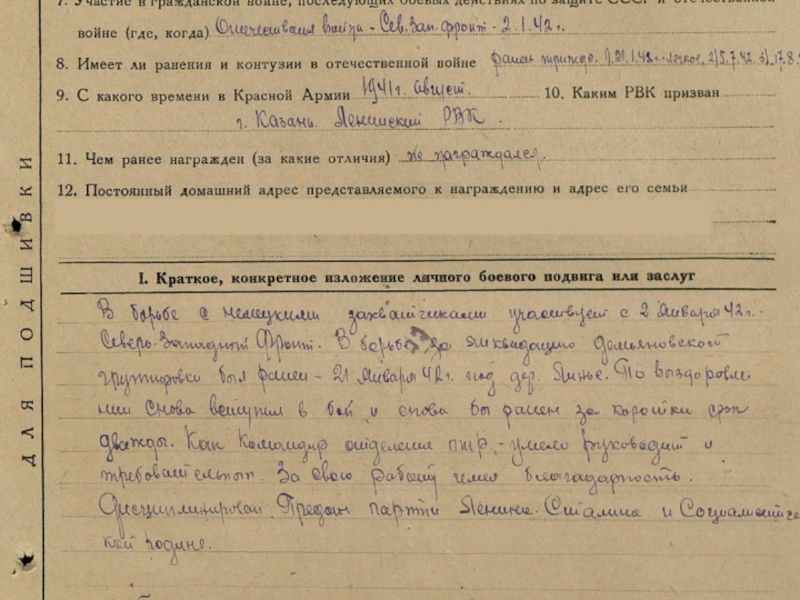 7. Участие в гражданской войне, последующих боевых действиях по защите СССР и отечественной
войне (где, когда) Отечественная война - Сев. Зап. фронт - 2.1.42 г.
8. Имеет ли ранения и контузии в отечественной войне ранен трижды. 1). 21.1.42г. - легкое, 2) 5.7.42. 3). 17.8.
9. С какого времени в Красной Армии 1941г. август. 10. Каким РВК призван
г. Казань Ленинский РВК.
11. Чем ранее награжден (за какие отличия) не награждался.
12. Постоянный домашний адрес представляемого к награждению и адрес его семьи
I. Краткое, конкретное изложение личного боевого подвига или заслуг
В борьбе с немецкими захватчиками участвует с 2 января 42г.
Северо-Западный Фронт. В борьбе за ликвидацию демьяновской
группировки был ранен - 21 января 42г. под дер.
По выздоровле
нии снова вступил в бой и снова бы ранен за коротки срок
дважды. Как командир отделения птр - умело руководит и
требовательный. За свою работу имел благодарность.
Дисциплинирован. Предан партии Ленина-Сталина и Социалистиче
кой родине.
ДЛЯ ПОДШИВКИ